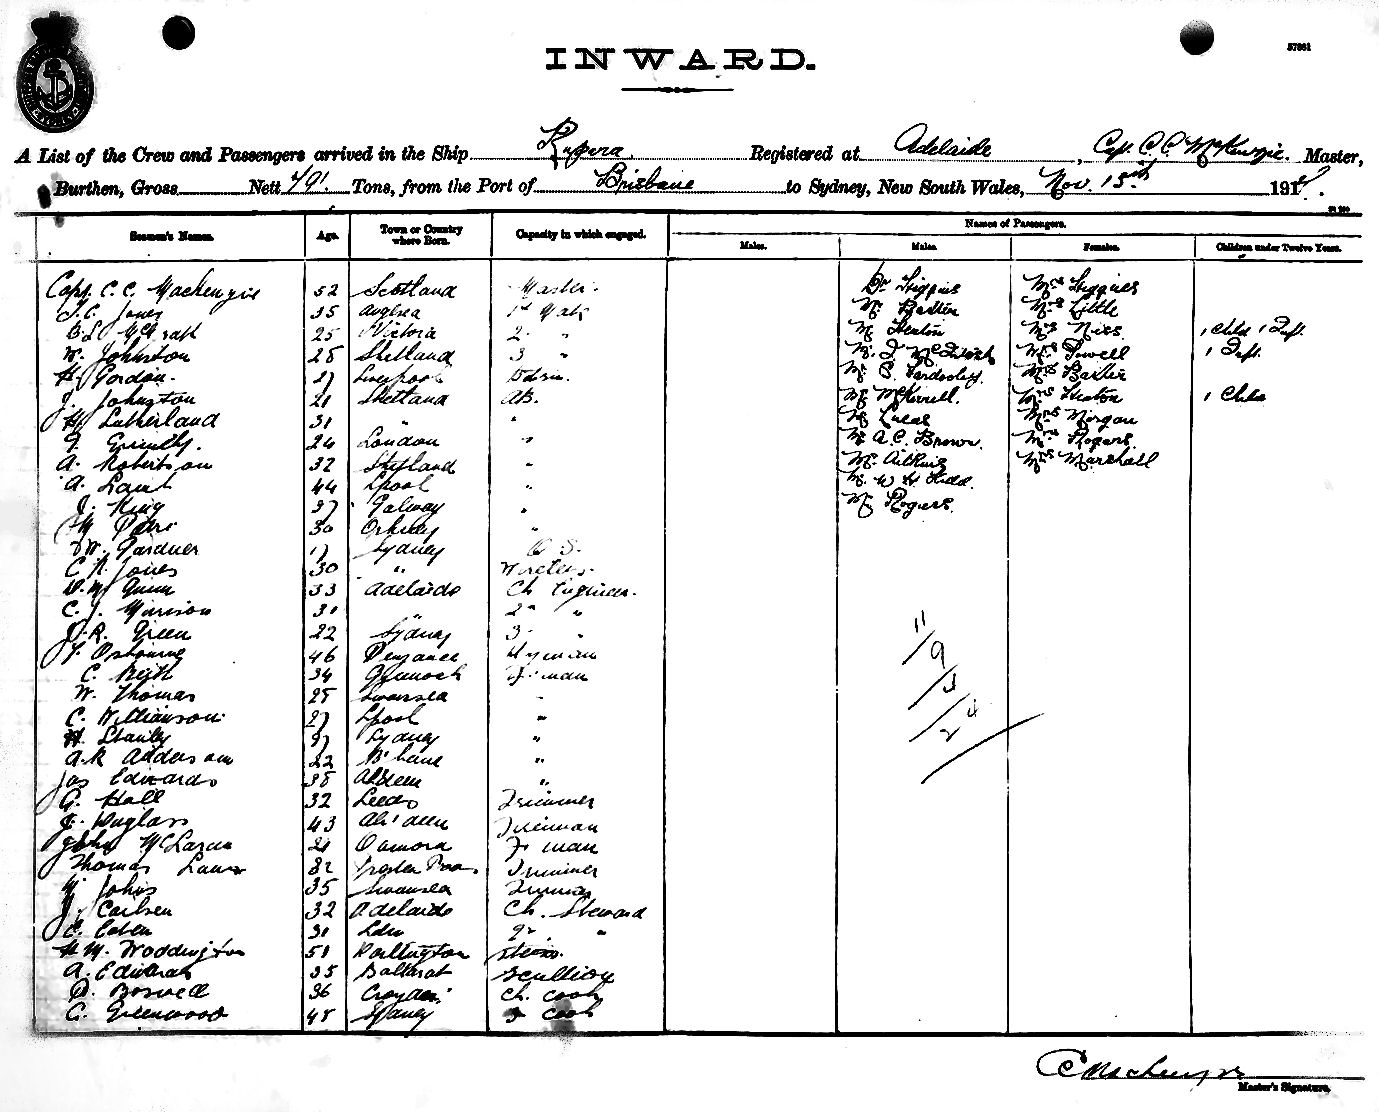 57861
INWARD.
A List of the Crew and Passengers arrived in the Ship Rupara Registered at Adelaide, Capt. C.C. McKenzie Master,
Burthen, Gross Nett 791 Tons, from the Port of Brisbane to Sydney, New South Wales, Nov. 15th 191
Names of Passengers.
Seamen's Names. Age. Town or Country where Born. Capacity in which engaged. Males. Males. Females. Children under Twelve Years.
Capt. C. C. Mackenzie 52 Scotland Master. Dr Higgins Mrs Higgins
Jones 35 1st Mate Mr Mrs Little
McGrath 25 Victoria 2 " Mr Heaton Mrs 1 Child 1 Inft.
W. Johnston 28 Shetland 3 " Mr. J Mrs Powell 1 Inft.
H. Gordon. 27 Liverpool Mr Mrs Baxter
J. Johnston 21 Shetland AB. Mr Mrs Heaton 1 Child
H. Sutherland 31 " " Mr Lucas Mrs Morgan
24 London " Mr A.C. Brown. Mrs Rogers.
A. Robertson 32 Shetland " Mr. Aitkins Mrs Marshall
A. Lamb 44 Lpool " Mr. W H Kidd.
J. King 37 Galway " Mr Rogers.
30 Orkney "
W. Gardner 17 Sydney O S.
C R. Jones 30 " Wireless.
Quinn 33 Adelaide Ch Engineer.
C. J. Morrison 31 " 2nd "
J. R. Green 22 Sydney 3 "
11/9/3/24
Osbourne 46 Penzance
C. Keith 34 Greenock F. man
W. Thomas 28 Swansea "
C. Williamson. 27 Lpool "
H Stanley 27 Sydney "
A. R Adderson 22 B'bane "
Jas Edwards 38 "
G. Hall 32 Leeds Trimmer
J. Duglass 43 Ab'deen Fireman
John McLaren 21 Oamaru F. man
Thomas 32 Trimmer
Johns 35 Swansea
Carlsen 32 Adelaide Ch. Steward
C. 31 2nd "
H M. Woddington 51 Darlington
A. Edwards 35 Ballarat Scullion
D. Boswell 36 Croydon Ch. Cook
C. Greenwood 48 Sydney 2 Cook
C Mackenzie
Master's Signature.